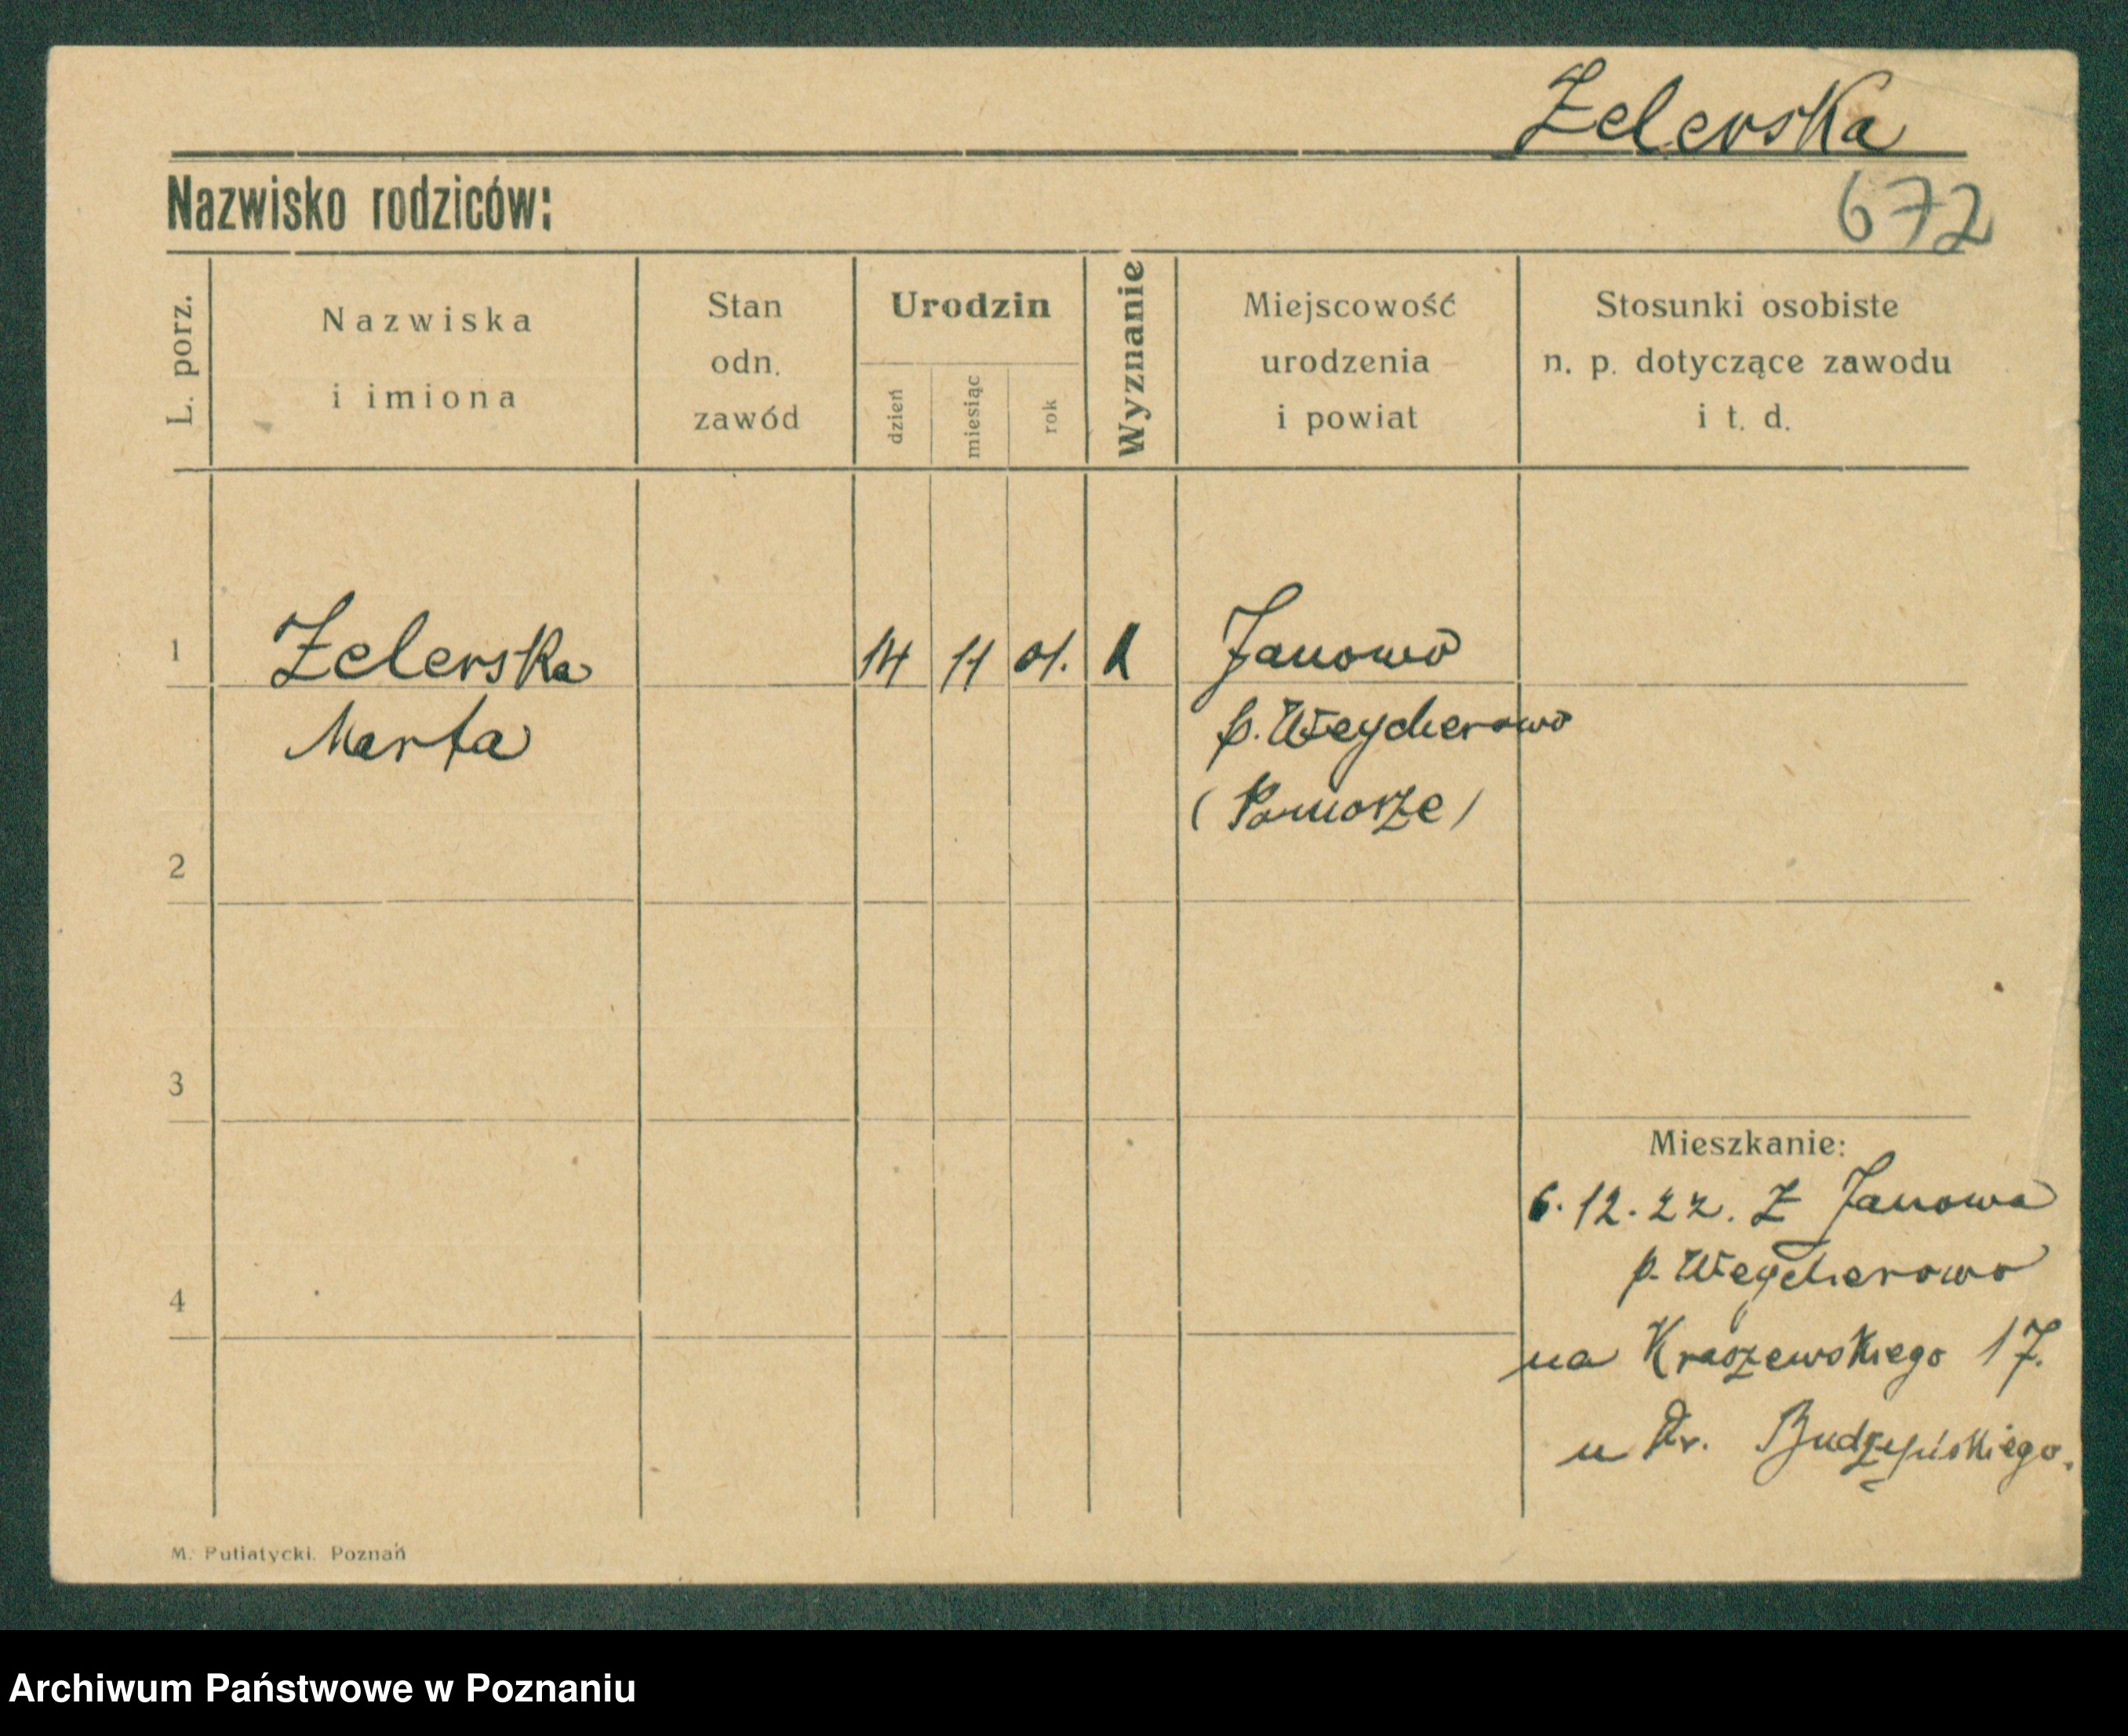 Zelerska
Nazwisko rodziców:
672
L. porz.
Nazwiska
i imiona
Stan
odn.
zawód
Urodzin
dzień
miesiąc
rok
Wyznanie
Miejscowość
urodzenia
i powiat
Stosunki osobiste
n. p. dotyczące zawodu
i t. d.
1
Zelerska
14
11
01.
k
Janowo
Marta
p. Weycherowo
(Pomorze)
2
3
Mieszkanie:
6. 12. 22. Z Janowa
p. Weycherowo
4
na Kraszewskiego 17.
u Dr. Budzyńskiego.
M. Putiatycki. Poznań
Archiwum Państwowe w Poznaniu